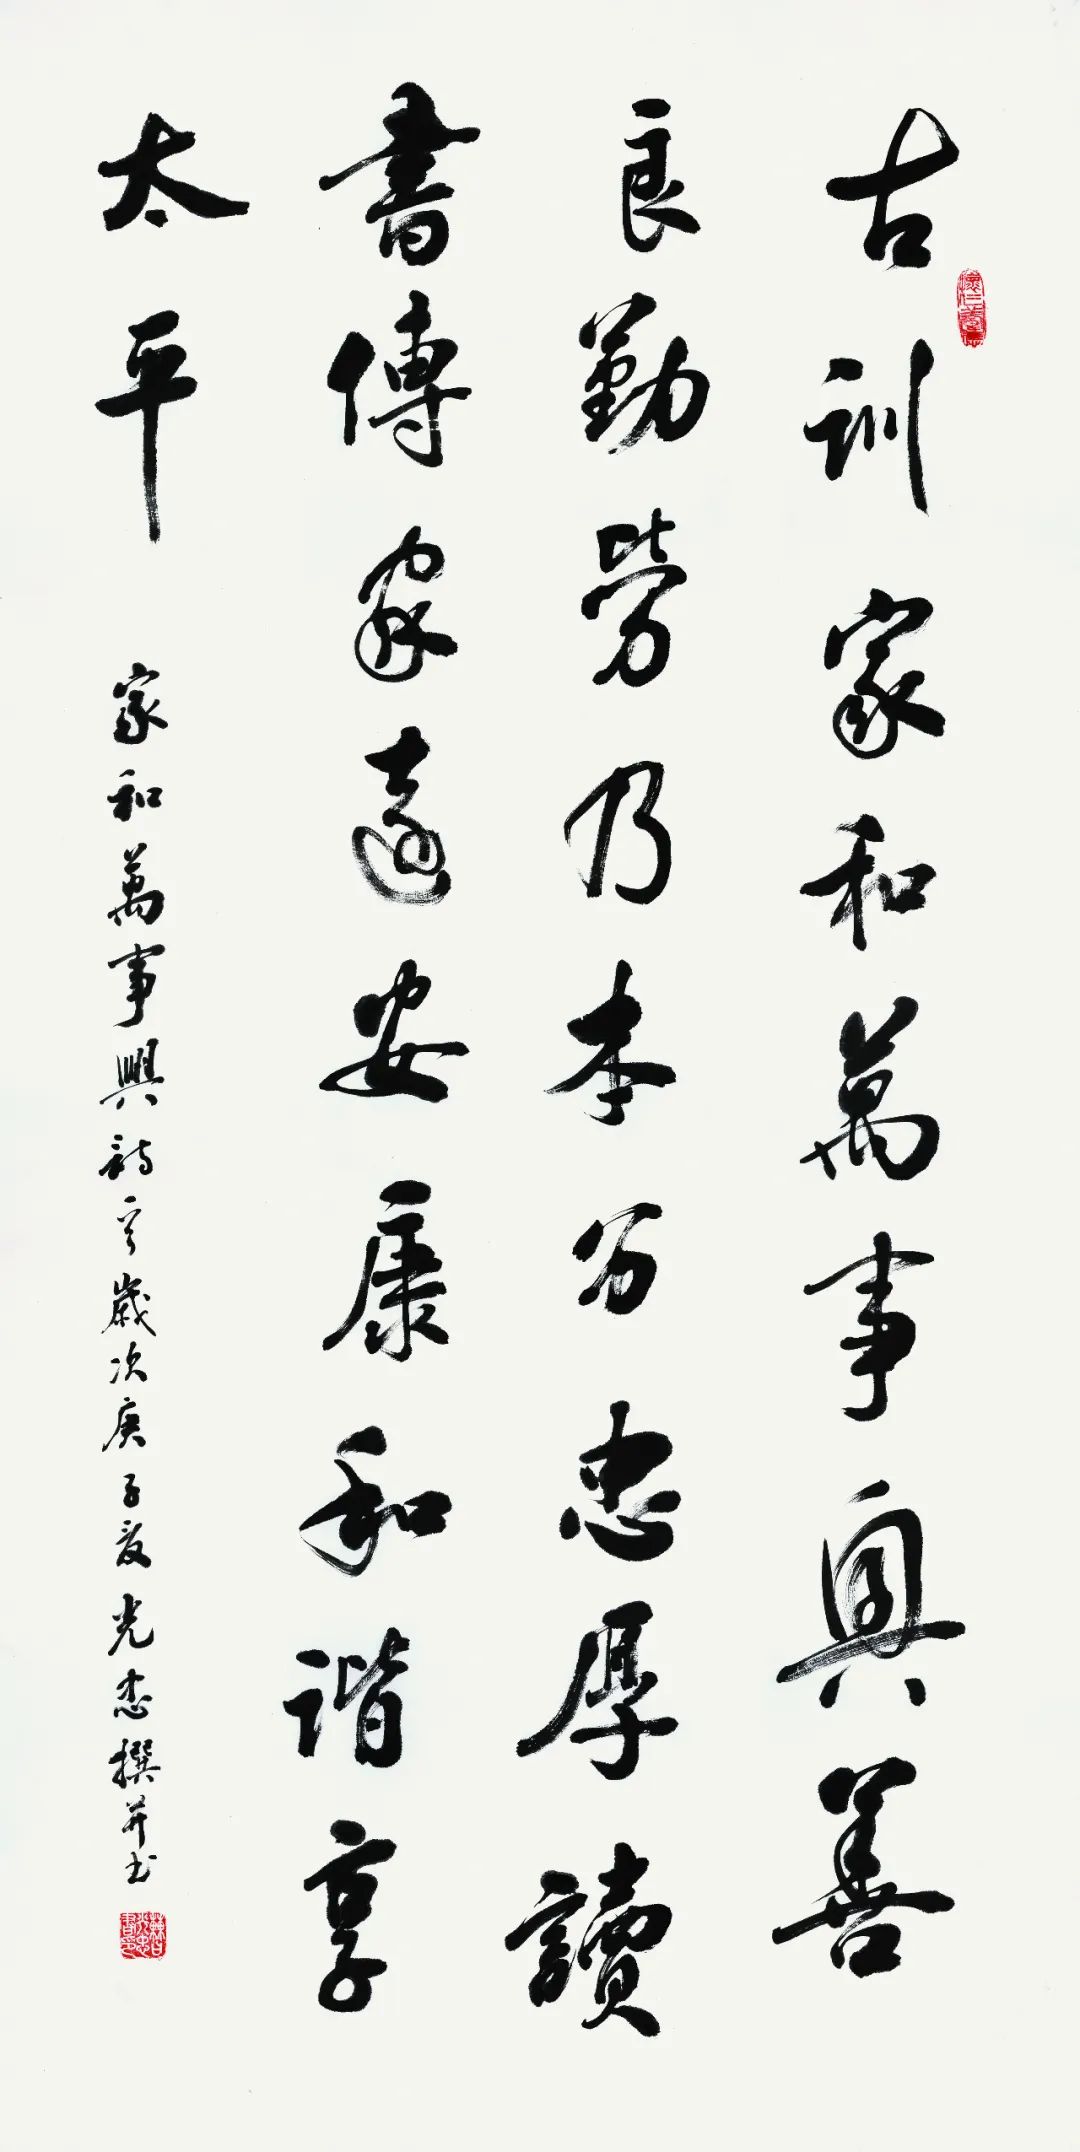 古訓家和萬事興善
良勤勞乃本分忠厚讀
書傳家遠安康和諧享
太平
家和萬事興詩一首歲次庚子夏光忠撰并书